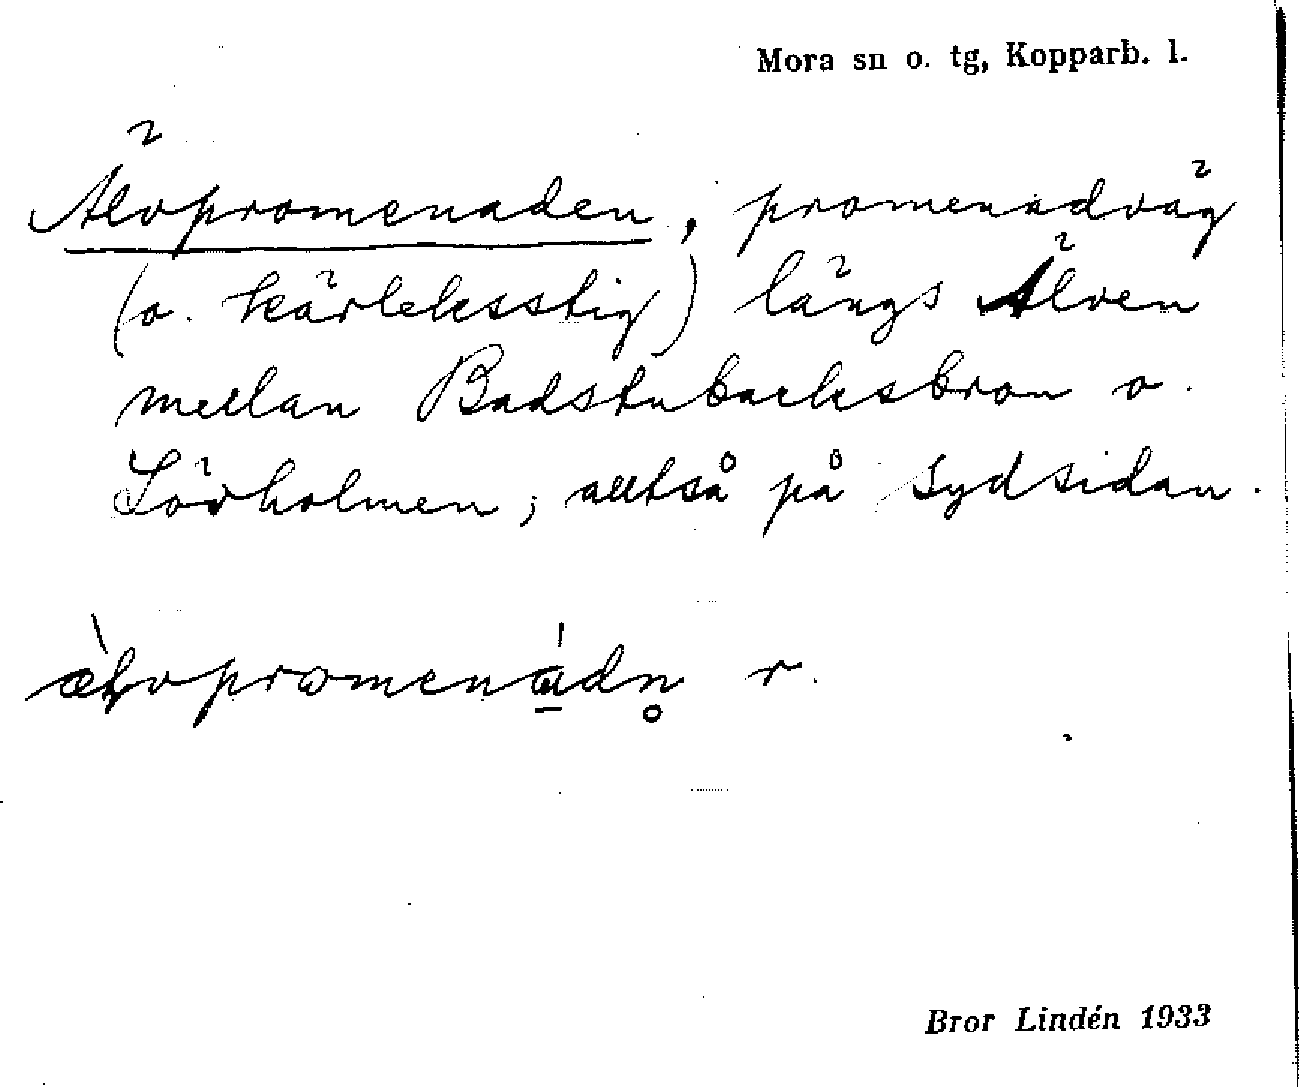 Mora sn o. tg, Kopparb. l.
Älvpromenaden, promenadväg
(o. kärleksstig) längs Älven
mellan Badstubacksbron o.
Lövholmen, alltså på sydsidan.
r.
Bror Lindén 1933